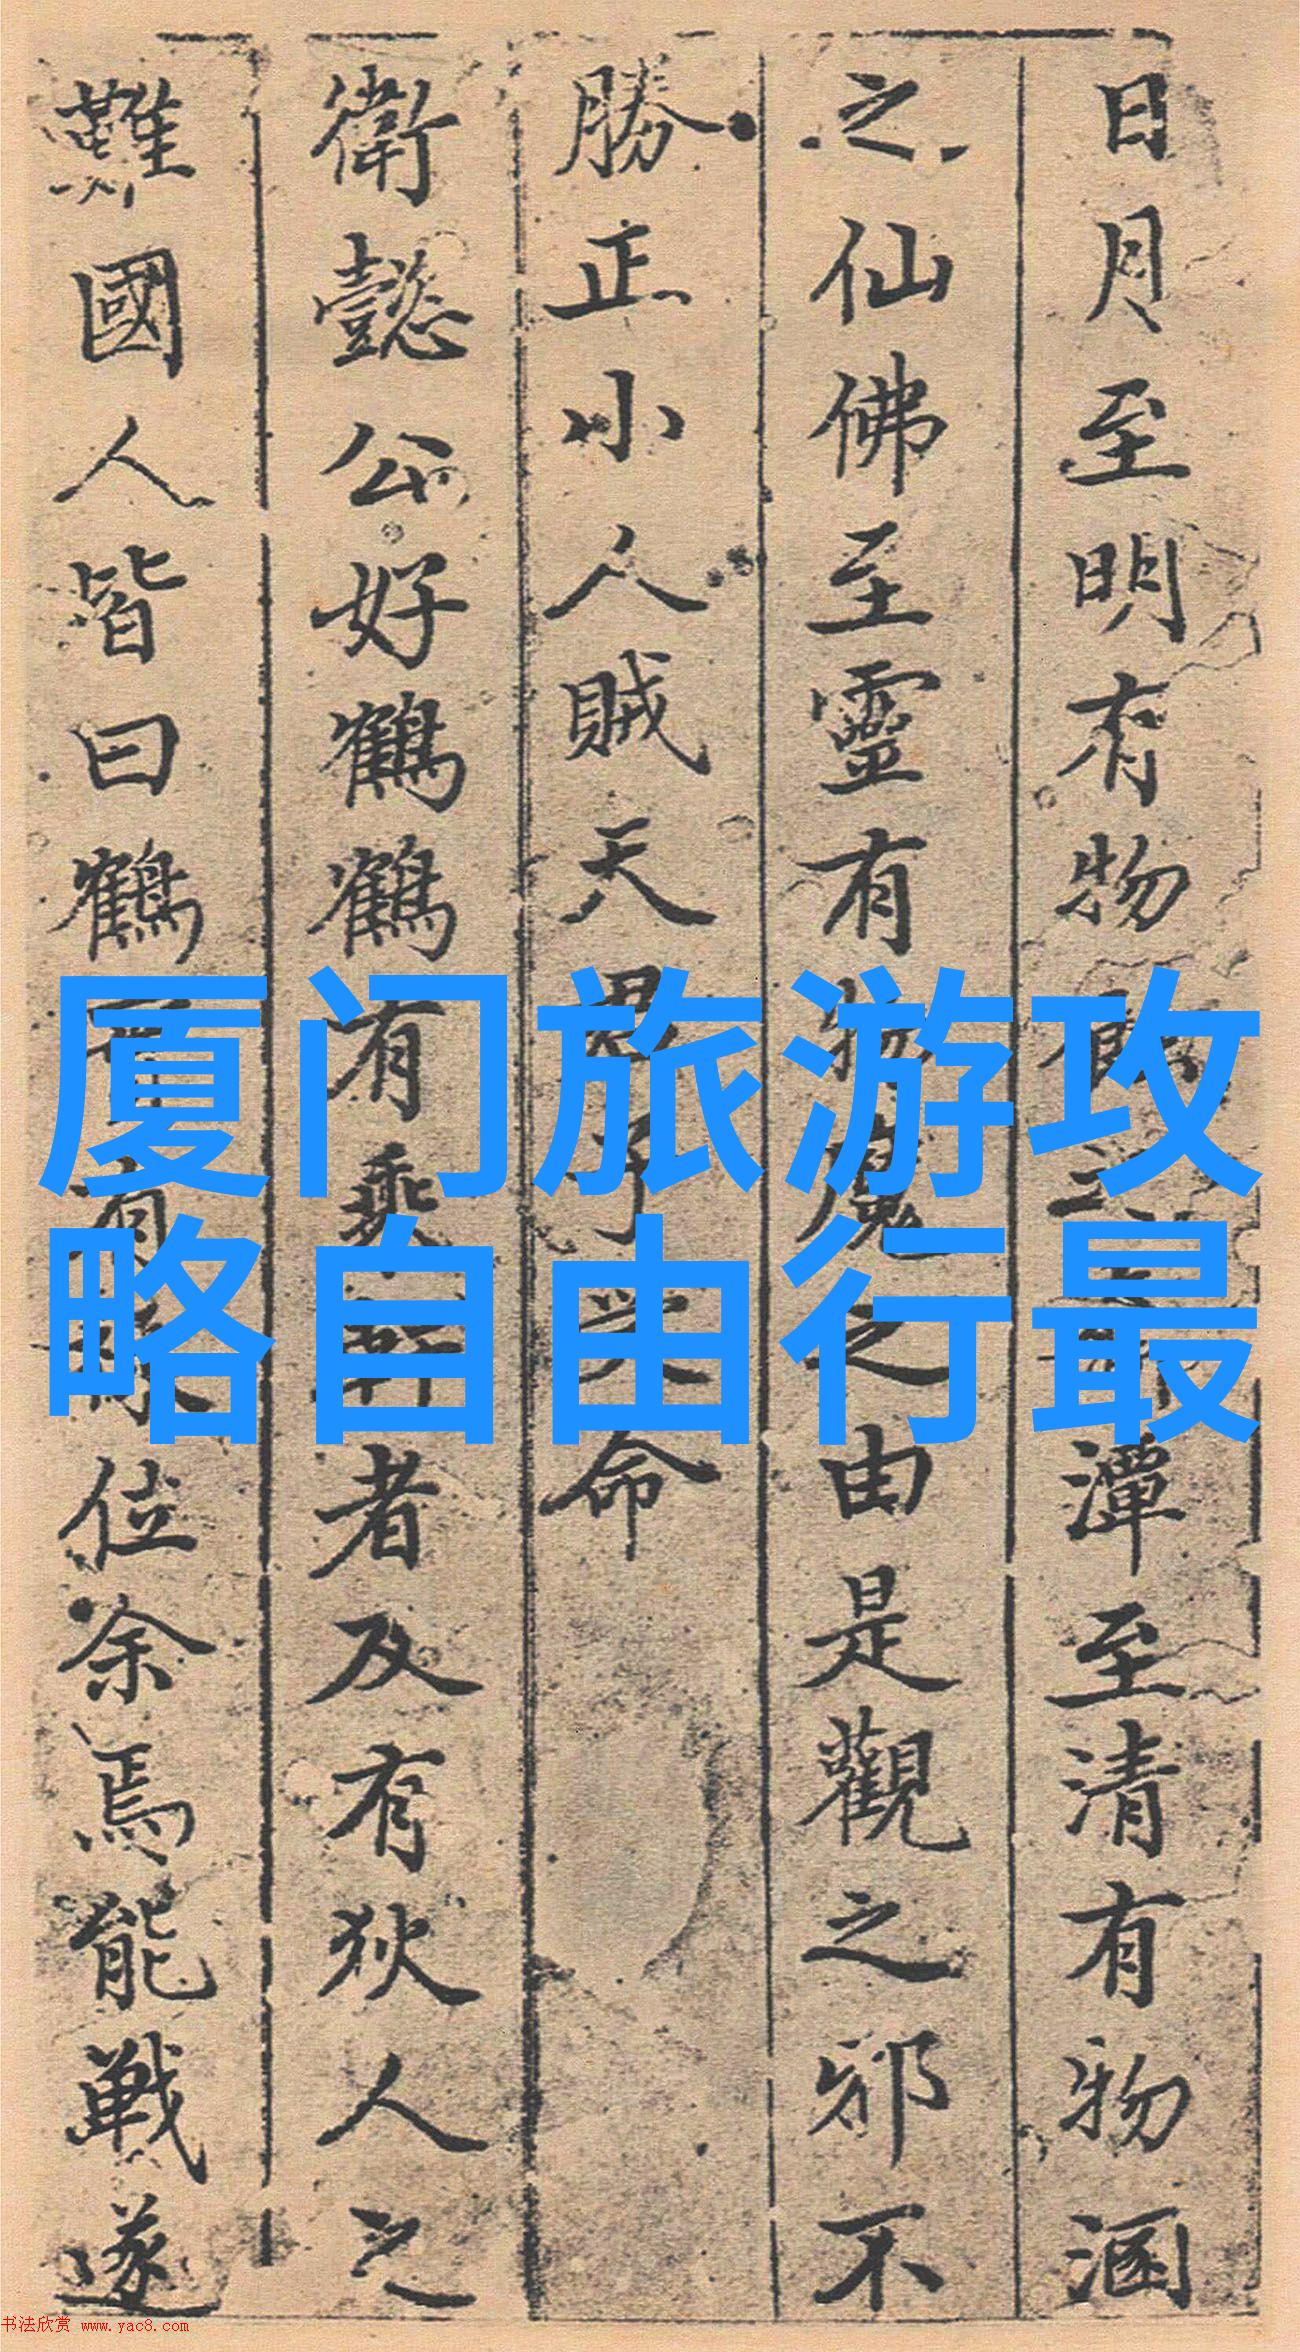 日月至明有物
潭至清有物溷
之仙佛至靈有物魔之由是觀之邪不
勝正小人賊天君子
命
衛懿公好鶴鶴有乘軒者及有狄人之
難國人皆曰鶴
有祿位余焉能戰遂
厦门旅游攻
略自由行最
书法欣赏 www.yac8.com